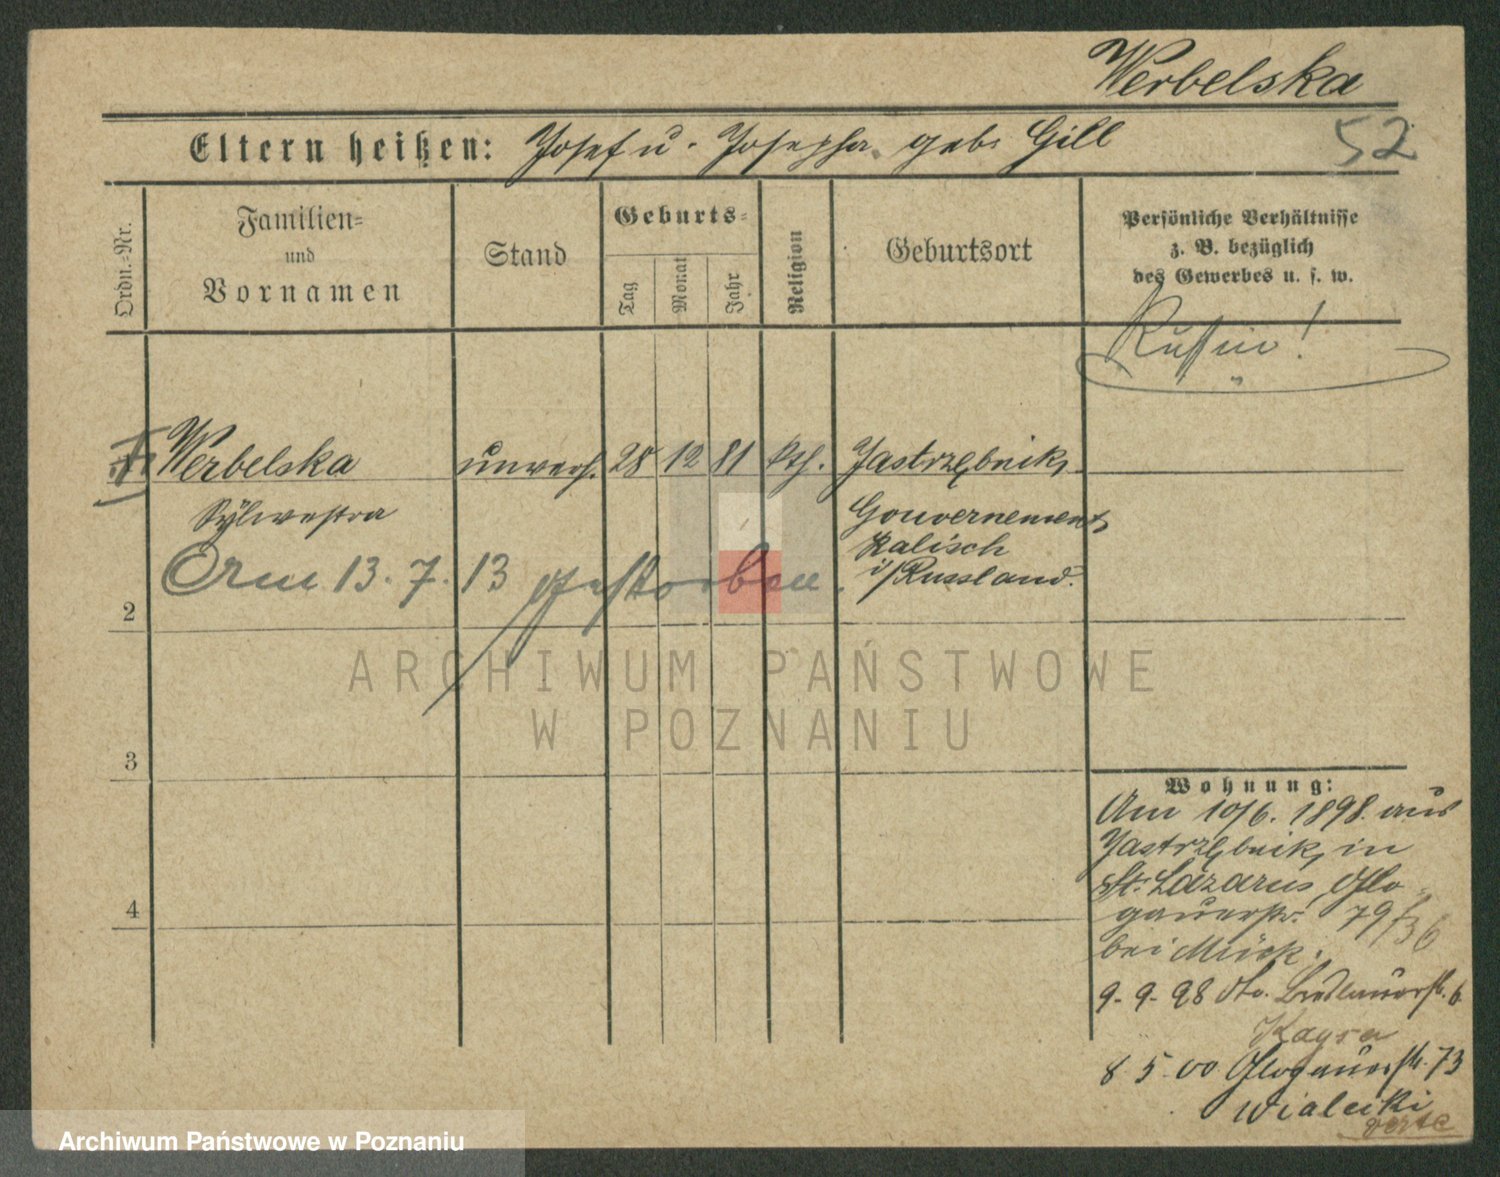 Werbelska
52
Eltern heißen: Josef u. Josepha geb. Gill
Ordn.-Nr.
Familien- und Vornamen
Stand
Geburts-
Tag
Monat
Jahr
Religion
Geburtsort
Persönliche Verhältnisse
z. B. bezüglich
des Gewerbes u. s. w.
Russin!
1 Werbelska unverh. 28 12 81 kth. Jastrzębnik,
Sylwestra
Gouvernement
Kalisch
i/Russland.
Am 13. 7. 13 gestorben.
2
3
4
Wohnung:
Am 10/6. 1898. aus
Jastrzębnik, in
St. Lazarus, Glo-
gauerstr. 79/36
bei Mück.
9-9-98 Breslauerstr. 6
Kayser
8 5 00 Glogauerstr. 73
Wialecki
verte
ARCHIWUM PAŃSTWOWE
W POZNANIU
Archiwum Państwowe w Poznaniu